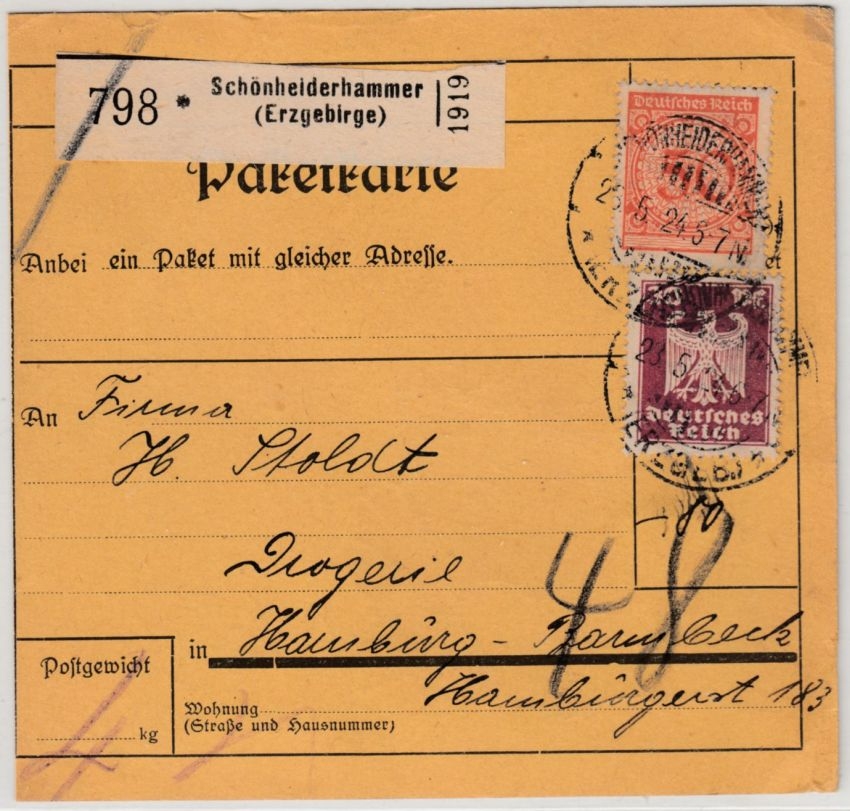 798 * Schönheiderhammer
(Erzgebirge)
1919
Paketkarte
Deutsches Reich
23.5.24.5-7N.
Anbei ein Paket mit gleicher Adresse.
23.5
Deutsches
Reich
An Firma
H. Stoldt
-80
Drogerie
48
in Hamburg - Barmbeck
Postgewicht
kg
4
Wohnung
(Straße und Hausnummer)
Hamburgerst 183